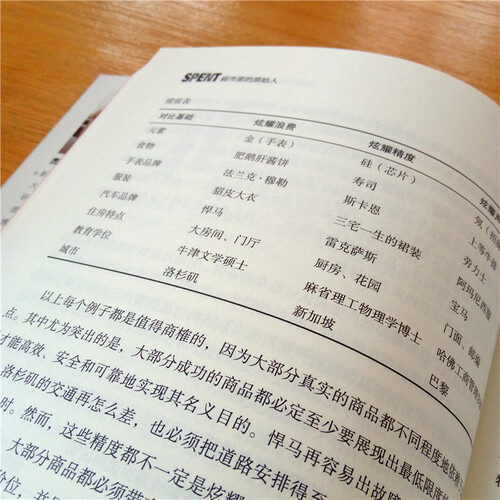 SPENT 超市里的原始人
续前表
对比基础 炫耀浪费 炫耀精度 炫耀
元素 金（手表） 硅（芯片）
食物 肥鹅肝酱饼 寿司 上等牛排
手表品牌 法兰克·穆勒 斯卡恩 劳力士
服装 貂皮大衣 三宅一生的裙装 阿玛尼西服
汽车品牌 悍马 雷克萨斯 宝马
住房特点 大房间、门厅 厨房、花园 门面、
教育学位 牛津文学硕士 麻省理工物理学博士 哈佛工商管理
城市 洛杉矶 新加坡 巴黎
以上每个例子都是值得商榷的，因为大部分真实的商品都不同程度地依
点。其中尤为突出的是，大部分成功的商品都必定至少要展现出最低限度
才能高效、安全和可靠地实现其名义目的。悍马再容易出故障
洛杉矶的交通再怎么差，也必须把道路安排得
时。然而，这些精度都不一定是炫耀
大部分商品都必须带